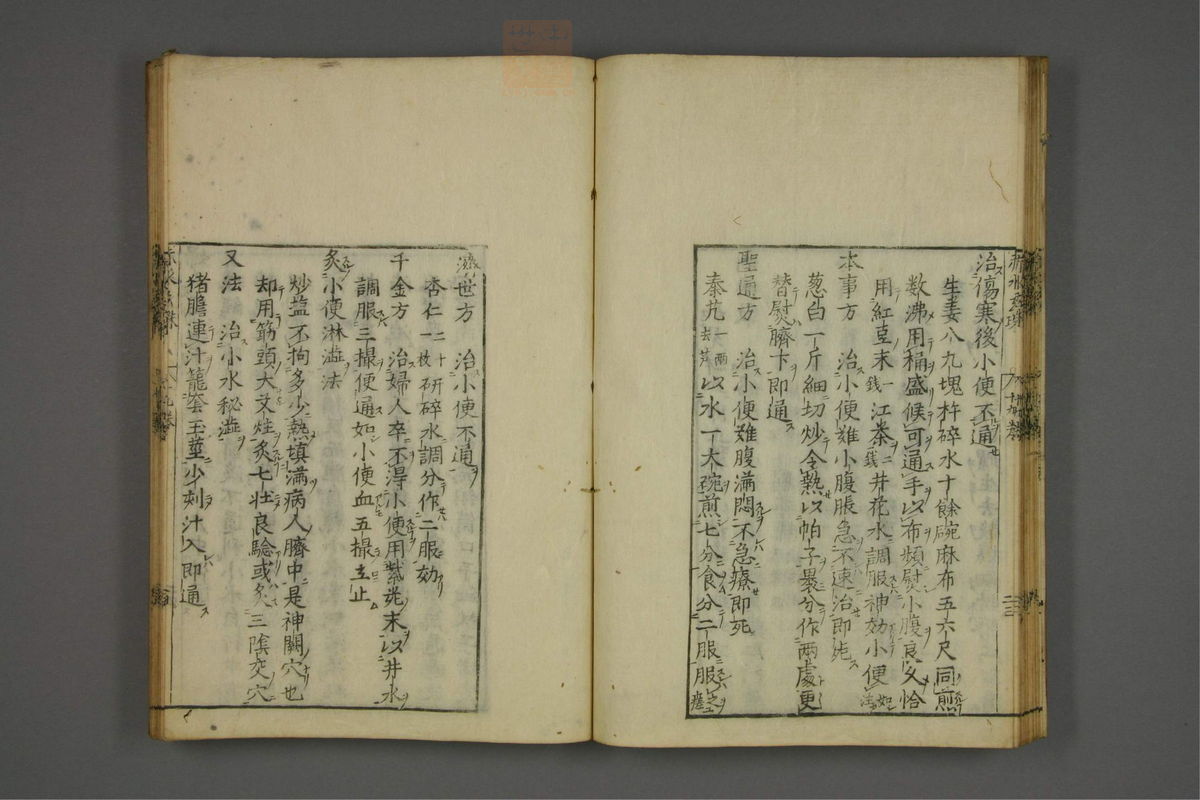 治傷寒後小便不通
生姜八九塊杵碎水十餘碗麻布五六尺同煎
数沸用桶盛候可通手以布頻熨小腹良久恰
用紅豆末一錢江茶二錢井花水調服神効小便如注
本事方 治小便難小腹脹急不速治即死
葱白一斤細切炒令熱以帕子裹分作兩處更
替熨臍下即通
聖通方 治小便難腹滿悶不急療即死
秦艽一兩去芦以水一大碗煎七分食分二服服之立
濟世方 治小便不通
杏仁二十一枚研碎水調分作二服効
千金方 治婦人卒不得小便用紫菀末以井水
調服三撮便通如小便血五撮立止
灸小便淋澁法
炒盐不拘多少熱填滿病人臍中是神闕穴也
却用筯頭大艾炷灸七壮良驗或灸三陰交穴
又法 治小水秘澁
猪膽連汁籠套玉莖少刻汁入即通